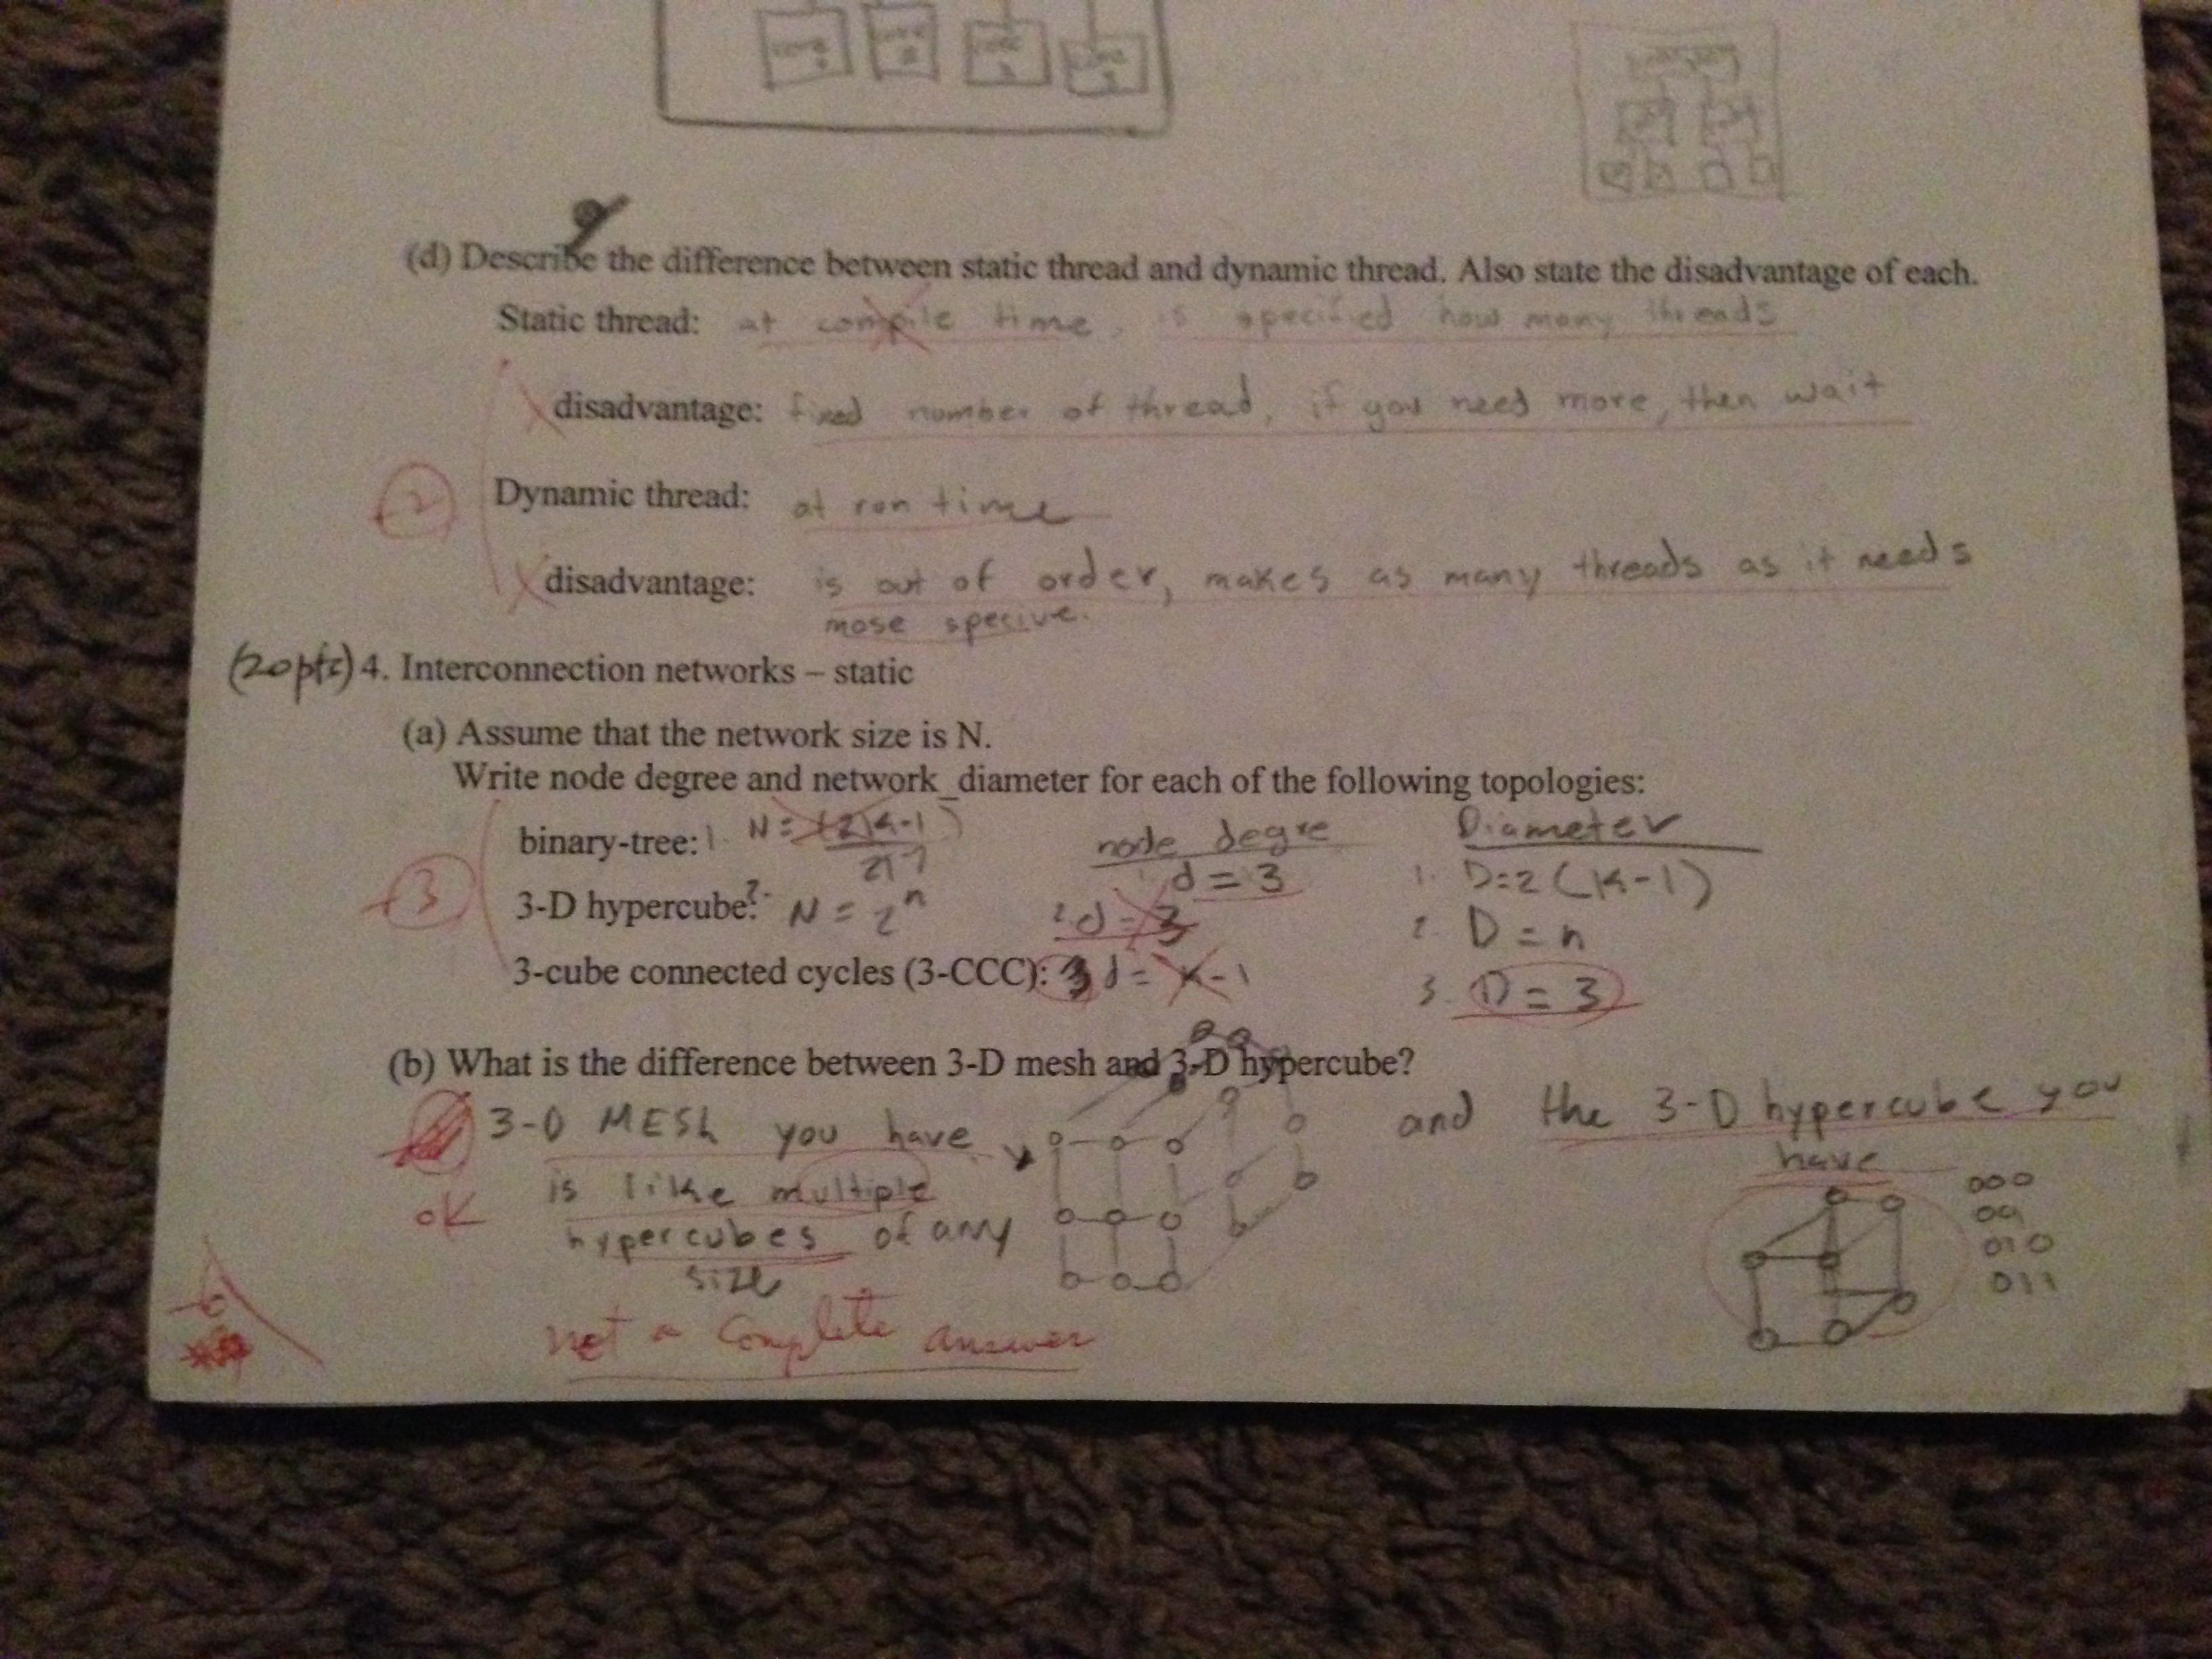 (d) Describe the difference between static thread and dynamic thread. Also state the disadvantage of each.
Static thread: at compile time, is specified how many threads
disadvantage: fixed number of thread, if you need more, then wait
+2
Dynamic thread: at run time
disadvantage: is out of order, makes as many threads as it needs
(20pts) 4. Interconnection networks – static
(a) Assume that the network size is N.
Write node degree and network diameter for each of the following topologies:
node degre Diameter
binary-tree: 1. N= d=3 1. D=2(k-1)
+3
3-D hypercube: 2. N=2^n 2. d=3 2. D=n
3-cube connected cycles (3-CCC): 3 d=k-1 3. D=3
(b) What is the difference between 3-D mesh and 3-D hypercube?
3-D MESH you have and the 3-D hypercube you
have
ok
is like multiple
hypercubes of any
size
000
010
011
Not a Complete answer